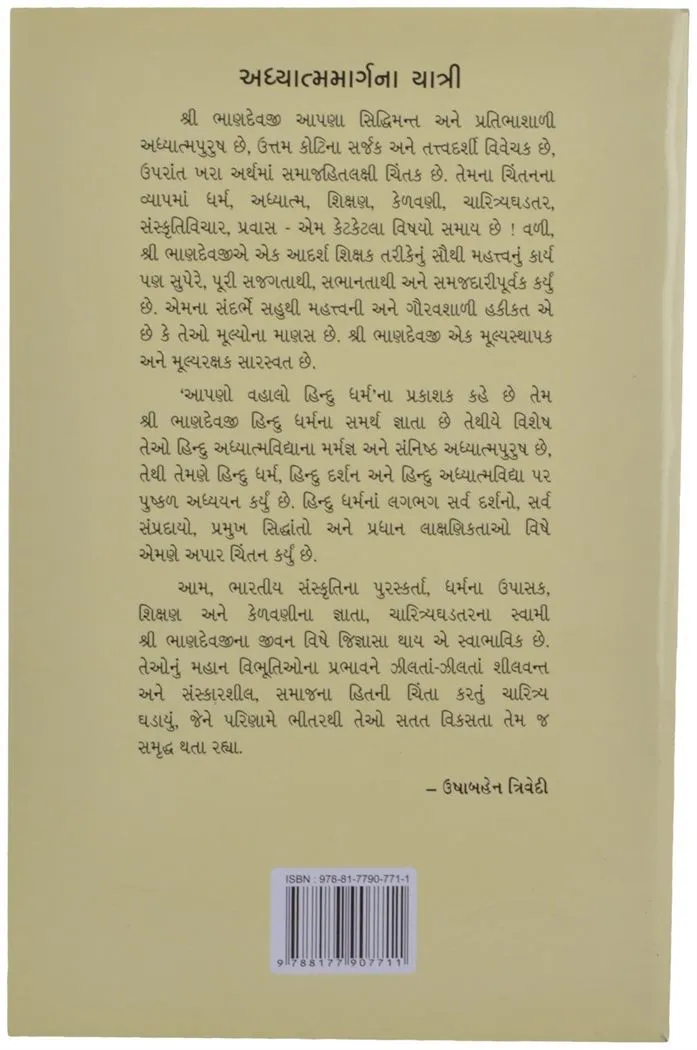 અધ્યાત્મમાર્ગના યાત્રી
શ્રી ભાણદેવજી આપણા સિદ્ધિમન્ત અને પ્રતિભાશાળી
અધ્યાત્મપુરુષ છે, ઉત્તમ કોટિના સર્જક અને તત્ત્વદર્શી વિવેચક છે,
ઉપરાંત ખરા અર્થમાં સમાજહિતલક્ષી ચિંતક છે. તેમના ચિંતનના
વ્યાપમાં ધર્મ, અધ્યાત્મ, શિક્ષણ, કેળવણી, ચારિત્ર્યઘડતર,
સંસ્કૃતિવિચાર, પ્રવાસ - એમ કેટકેટલા વિષયો સમાય છે ! વળી,
શ્રી ભાણદેવજીએ એક આદર્શ શિક્ષક તરીકેનું સૌથી મહત્ત્વનું કાર્ય
પણ સુપેરે, પૂરી સજગતાથી, સભાનતાથી અને સમજદારીપૂર્વક કર્યું
છે. એમના સંદર્ભે સહુથી મહત્ત્વની અને ગૌરવશાળી હકીકત એ
છે કે તેઓ મૂલ્યોના માણસ છે. શ્રી ભાણદેવજી એક મૂલ્યસ્થાપક
અને મૂલ્યરક્ષક સારસ્વત છે.
‘આપણો વહાલો હિન્દુ ધર્મ’ના પ્રકાશક કહે છે તેમ
શ્રી ભાણદેવજી હિન્દુ ધર્મના સમર્થ જ્ઞાતા છે તેથીયે વિશેષ
તેઓ હિન્દુ અધ્યાત્મવિદ્યાના મર્મજ્ઞ અને સંનિષ્ઠ અધ્યાત્મપુરુષ છે,
તેથી તેમણે હિન્દુ ધર્મ, હિન્દુ દર્શન અને હિન્દુ અધ્યાત્મવિદ્યા પર
પુષ્કળ અધ્યયન કર્યું છે. હિન્દુ ધર્મનાં લગભગ સર્વ દર્શનો, સર્વ
સંપ્રદાયો, પ્રમુખ સિદ્ધાંતો અને પ્રધાન લાક્ષણિકતાઓ વિષે
એમણે અપાર ચિંતન કર્યું છે.
આમ, ભારતીય સંસ્કૃતિના પુરસ્કર્તા, ધર્મના ઉપાસક,
શિક્ષણ અને કેળવણીના જ્ઞાતા, ચારિત્ર્યઘડતરના સ્વામી
શ્રી ભાણદેવજીના જીવન વિષે જિજ્ઞાસા થાય એ સ્વાભાવિક છે.
તેઓનું મહાન વિભૂતિઓના પ્રભાવને ઝીલતાં-ઝીલતાં શીલવન્ત
અને સંસ્કારશીલ, સમાજના હિતની ચિંતા કરતું ચારિત્ર્ય
ઘડાયું, જેને પરિણામે ભીતરથી તેઓ સતત વિકસતા તેમ જ
સમૃદ્ધ થતા રહ્યા.
– ઉષાબહેન ત્રિવેદી
ISBN : 978-81-7790-771-1
9 788177 907711